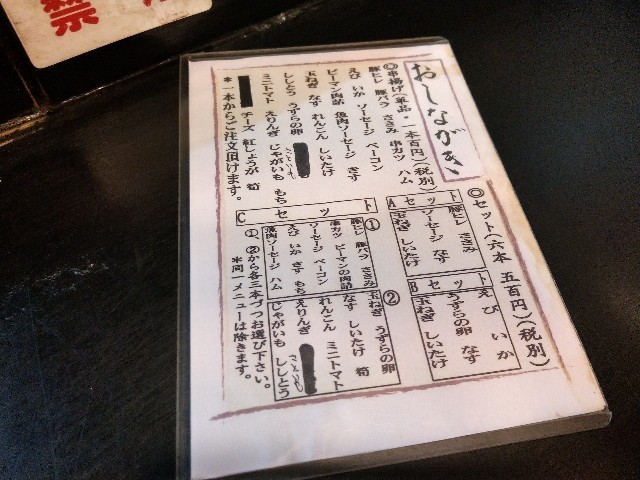 禁
おしながき
◎串揚げ(単品・一本百円)(税別)
豚ヒレ 豚バラ ささみ 串カツ ハム
えび いか ソーセージ ベーコン
ピーマン肉詰 魚肉ソーセージ きす
玉ねぎ なす れんこん しいたけ
ししとう うずらの卵 さといも
ミニトマト えりんぎ じゃがいも もち
チーズ 紅しょうが 筍
*一本からご注文頂けます。
◎セット(六本 五百円)(税別)
Aセット
豚ヒレ ささみ
ソーセージ なす
玉ねぎ しいたけ
Bセット
えび いか
うずらの卵 なす
玉ねぎ しいたけ
Cセット
①
豚ヒレ 豚バラ ささみ
串カツ ピーマンの肉詰
ソーセージ ベーコン
えび いか きす もち
魚肉ソーセージ ハム
②
玉ねぎ うずらの卵
なす しいたけ 筍
れんこん ミニトマト
えりんぎ さといも
じゃがいも ししとう
①、②から各三本づつお選び下さい。
*同一メニューは除きます。